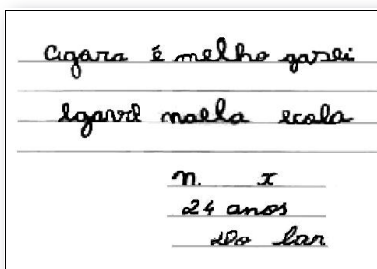 agara é melho garei
egarrê naela ecola
n. x
24 anos
Do lar